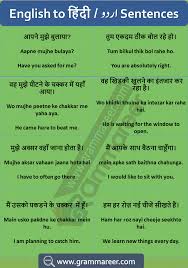 English to हिंदी / اردو Sentences
आपने मुझे बुलाया?
Aapne mujhe bulaya?
Have you asked for me?
तुम एकदम ठीक बोल रहे हो।
Tum bilkul thik bol rahe ho.
You are absolutely right.
वह मुझे पीटने के चक्कर में यहाँ
आया।
Wo mujhe peetne ke chakkar me
yaha aaya.
He came here to beat me.
वह खिड़की खुलने का इंतजार कर
रहा है।
Wo khidki khulne ka intezar kar raha
hai.
He is waiting for the window to open.
मुझे अक्सर वहाँ जाना होता है।
Mujhe aksar vahaan jaana hotai.
I have to often go there.
मैं आपके साथ बैठना चाहूँगा।
main apke sath baithna chahunga.
I would like to sit with you.
मैं उसको पकड़ने के चक्कर में हूँ।
Main usko pakdne ke chakkar mein
hu.
I am planning to catch him.
हम हर रोज़ नई चीजें सीखते हैं।
Ham har roz nayi cheeje seekhte
hai.
We learn new things every day.
www.grammareer.com